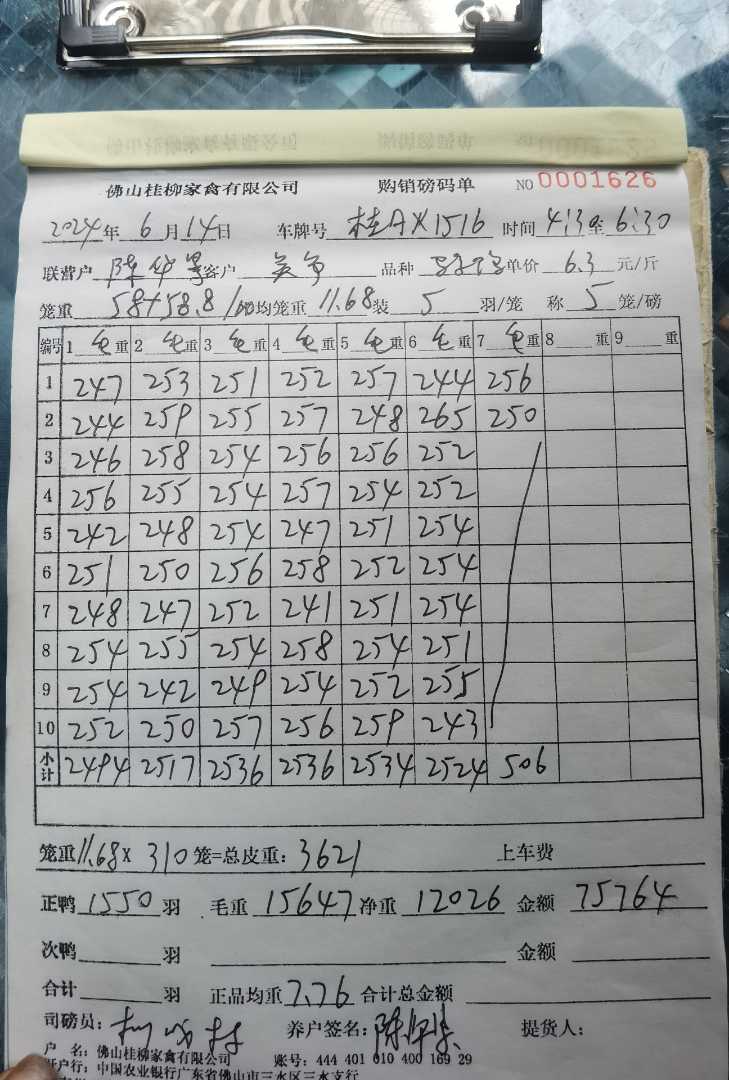 佛山桂柳家禽有限公司 购销磅码单 NO 0001626
2024年 6月14日 车牌号 桂AX1516 时间 4:30至6:30
联营户 陈 客户 品种 单价 6.3 元/斤
笼重 58+58.8/10 均笼重 11.68 装 5 羽/笼 称 5 笼/磅
编号 1 毛重 2 毛重 3 毛重 4 毛重 5 毛重 6 毛重 7 毛重 8 重 9 重
1 247 253 251 252 257 244 256
2 244 259 255 257 248 265 250
3 246 258 254 256 256 252
4 256 255 254 257 254 252
5 242 248 254 247 251 254
6 251 250 256 258 252 254
7 248 247 252 241 251 254
8 254 255 254 258 254 251
9 254 242 249 254 252 255
10 252 250 257 256 259 243
小计 2494 2517 2536 2536 2534 2524 506
笼重11.68× 310 笼=总皮重：3621 上车费
正鸭 1550 羽 毛重 15647 净重 12026 金额 75764
次鸭 羽 金额
合计 羽 正品均重 7.76 合计总金额
司磅员： 养户签名：陈 提货人：
户 名：佛山桂柳家禽有限公司 账号：444 401 010 400 169 29
开户行：中国农业银行广东省佛山市三水区三水支行